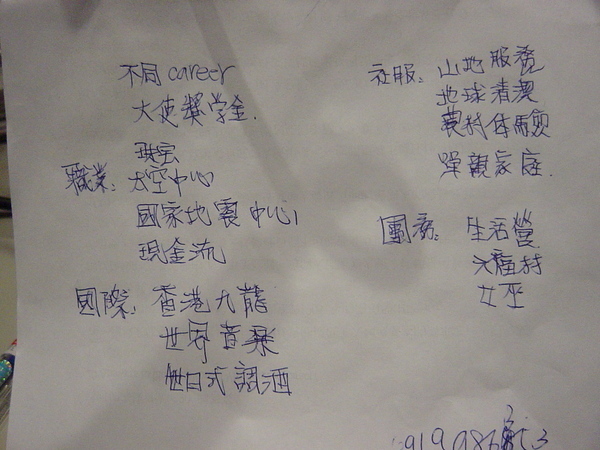 不同 career
大使獎学金.
珠宝
職業: 太空中心
國家地震中心
現金流
國際: 香港九龍
世界音樂
日式調酒
社服: 山地服務
地球清潔
農村体驗
單親家庭.
團務: 生活營
六福村
女巫